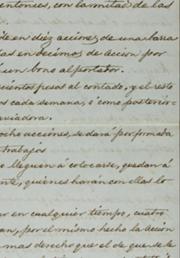 entonces, con la mitad de las
de en diez acciones de una barra
las en décimos de accion por
á un bono al portador.
cuientos pesos al contado, y el resto
os cada semana, ó como posterior-
aviadora.
ocho acciones, se dará por firmada
trabajos
se lleguen á colocarse, quedan á
ente, quienes harán con ellas lo
ar en cualquier tiempo, cuatro
an, por el mismo hecho la accion
mas derecho que el de que se le